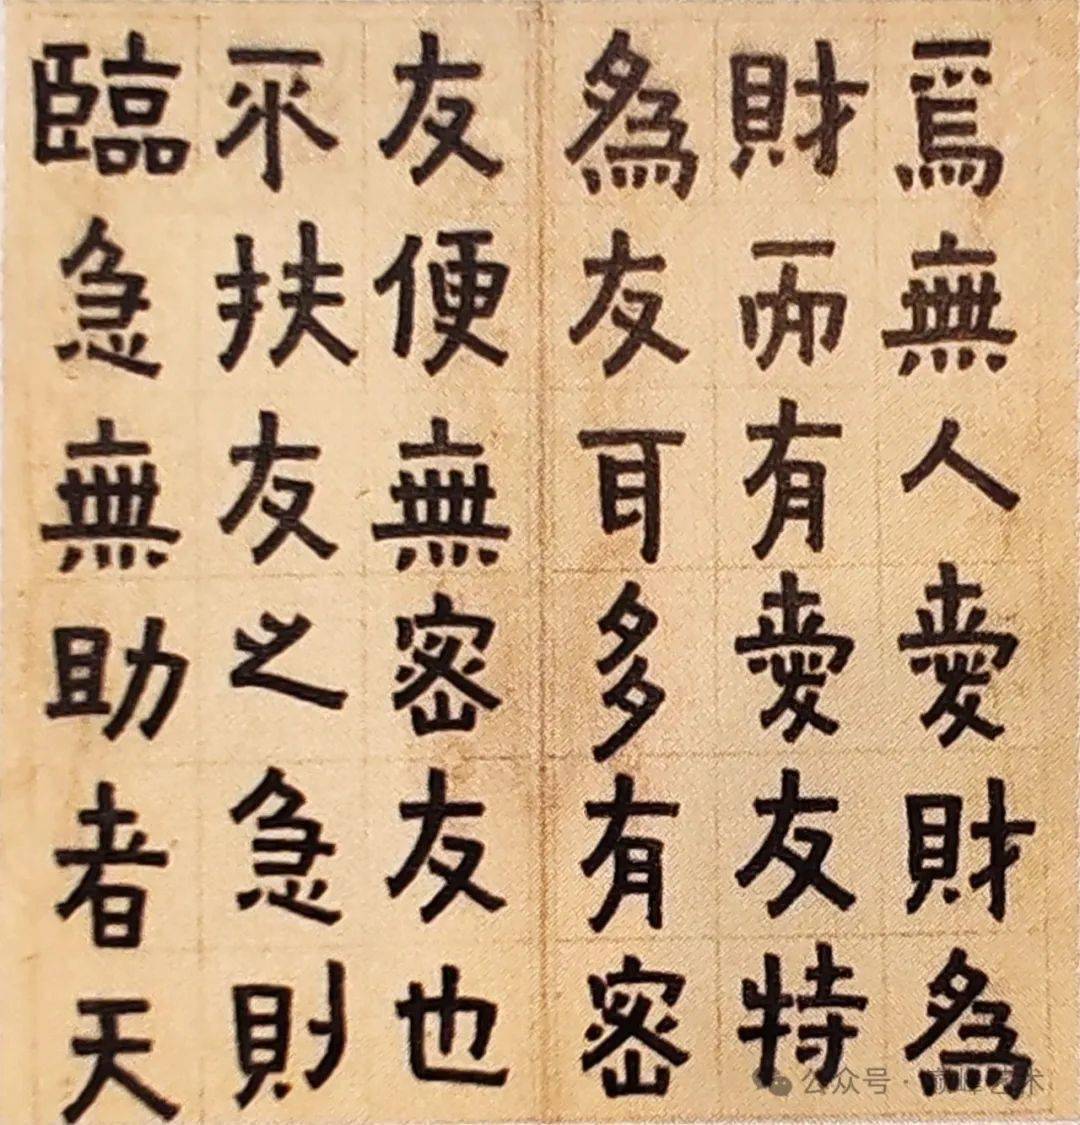 焉無人愛財為
財而有愛友特
為友耳多有密
友便無密友也
不扶友之急則
臨急無助者天
公众号 · 艺术